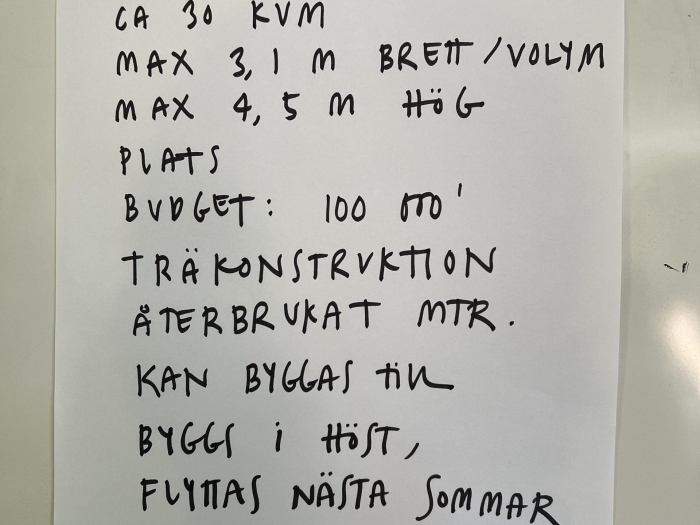 CA 30 KVM
MAX 3,1 M BRETT/VOLYM
MAX 4,5 M HÖG
PLATS
BUDGET: 100 000'
TRÄKONSTRUKTION
ÅTERBRUKAT MTR.
KAN BYGGAS TILL
BYGGS I HÖST,
FLYTTAS NÄSTA SOMMAR